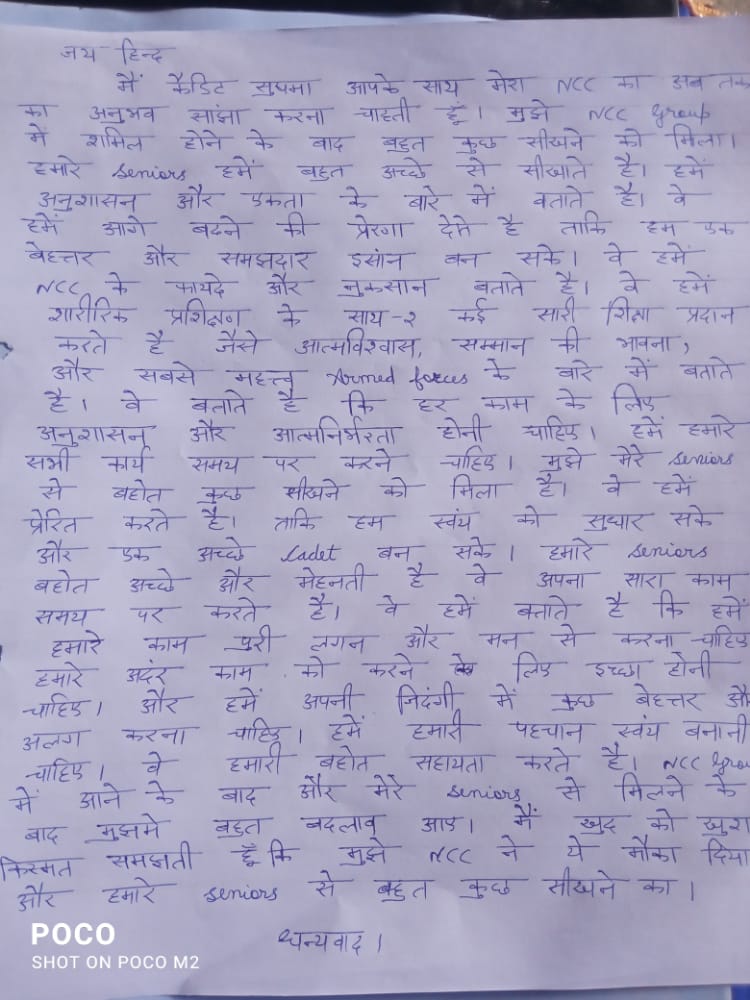 जय हिन्द
मैं कैडिट सुषमा आपके साथ मेरा NCC का अब तक
का अनुभव सांझा करना चाहती हूं। मुझे NCC Group
में शमिल होने के बाद बहुत कुछ सीखने को मिला।
हमारे seniors हमें बहुत अच्छे से सीखाते है। हमें
अनुशासन और एकता के बारे में बताते है। वे
हमें आगे बढने की प्रेरणा देते है ताकि हम एक
बेहत्तर और समझदार इसांन बन सके। वे हमें
NCC के फायदे और नुकसान बताते है। वे हमें
शारीरिक प्रशिक्षण के साथ-२ कई सारी शिक्षा प्रदान
करते है जैसे आत्मविश्वास, सम्मान की भावना,
और सबसे महत्त्व Armed forces के बारे में बताते
है। वे बताते है कि हर काम के लिए
अनुशासन और आत्मनिर्भरता होनी चाहिए। हमें हमारे
सभी कार्य समय पर करने चहिए। मुझे मेरे seniors
से बहोत कुछ सीखने को मिला है। वे हमें
प्रेरित करते है। ताकि हम स्वंय को सुधार सके
और एक अच्छे Cadet बन सके। हमारे seniors
बहोत अच्छे और मेहनती है वे अपना सारा काम
समय पर करते है। वे हमें बताते है कि हमें
हमारे काम पुरी लगन और मन से करना चहिए
हमारे अदंर काम को करने के लिए इच्छा होनी
चाहिए। और हमें अपनी जिदंगी में कुछ बेहत्तर और
अलग करना चाहिए। हमें हमारी पहचान स्वंय बनानी
चाहिए। वे हमारी बहोत सहायता करते है। NCC Grou
में आने के बाद और मेरे seniors से मिलने के
बाद मुझमे बहुत बदलाव आए। मैं खुद को खुश
किस्मत समझती हूँ कि मुझे NCC ने ये मौका दिया
और हमारे seniors से बहुत कुछ सीखने का।
धन्यवाद।
POCO
SHOT ON POCO M2